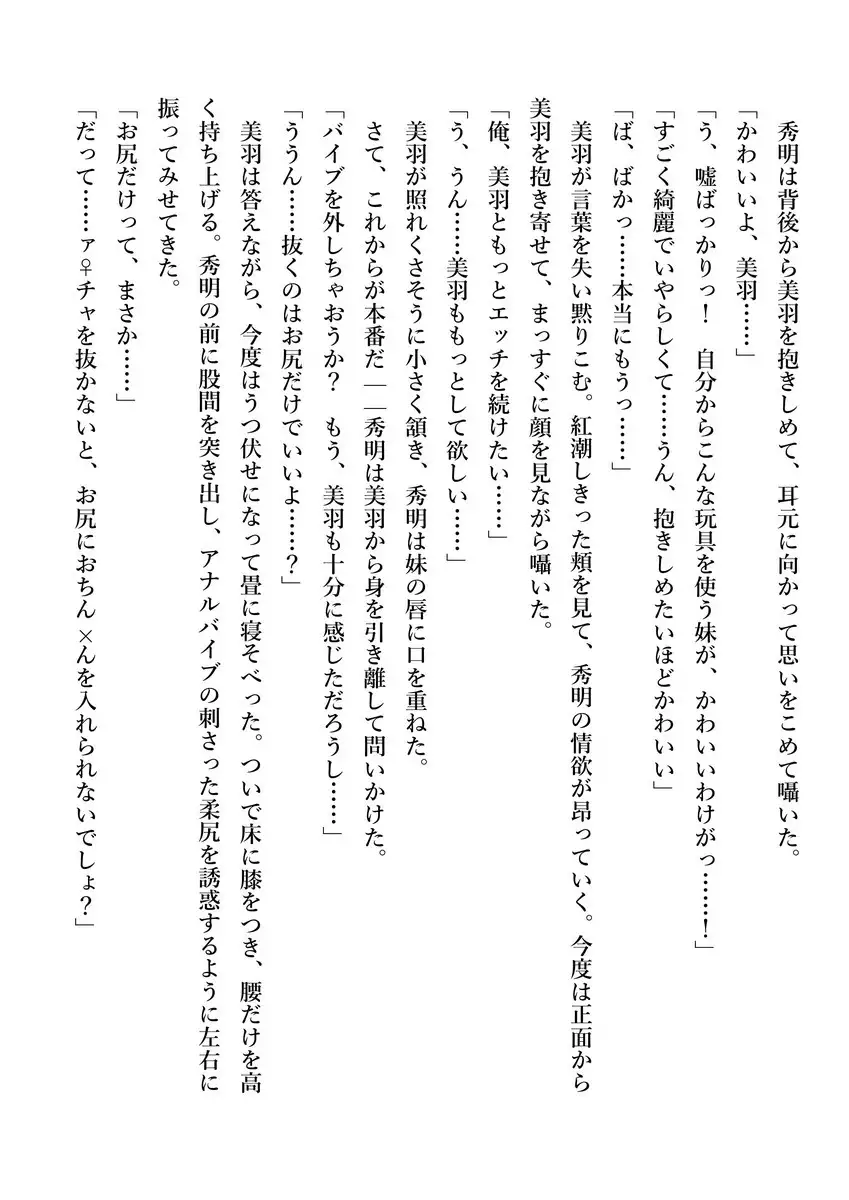 秀明は背後から美羽を抱きしめて、耳元に向かって思いをこめて囁いた。
「かわいいよ、美羽……」
「う、嘘ばっかりっ！　自分からこんな玩具を使う妹が、かわいいわけがっ……！」
「すごく綺麗でいやらしくて……うん、抱きしめたいほどかわいい」
「ば、ばかっ……本当にもうっ……」
美羽が言葉を失い黙りこむ。紅潮しきった頬を見て、秀明の情欲が昂っていく。今度は正面から
美羽を抱き寄せて、まっすぐに顔を見ながら囁いた。
「俺、美羽ともっとエッチを続けたい……」
「う、うん……美羽ももっとして欲しい……」
美羽が照れくさそうに小さく頷き、秀明は妹の唇に口を重ねた。
さて、これからが本番だ――秀明は美羽から身を引き離して問いかけた。
「バイブを外しちゃおうか？　もう、美羽も十分に感じただろうし……」
「ううん……抜くのはお尻だけでいいよ……？」
美羽は答えながら、今度はうつ伏せになって畳に寝そべった。ついで床に膝をつき、腰だけを高
く持ち上げる。秀明の前に股間を突き出し、アナルバイブの刺さった柔尻を誘惑するように左右に
振ってみせてきた。
「お尻だけって、まさか……」
「だって……ァ♀チャを抜かないと、お尻におちん×んを入れられないでしょ？」